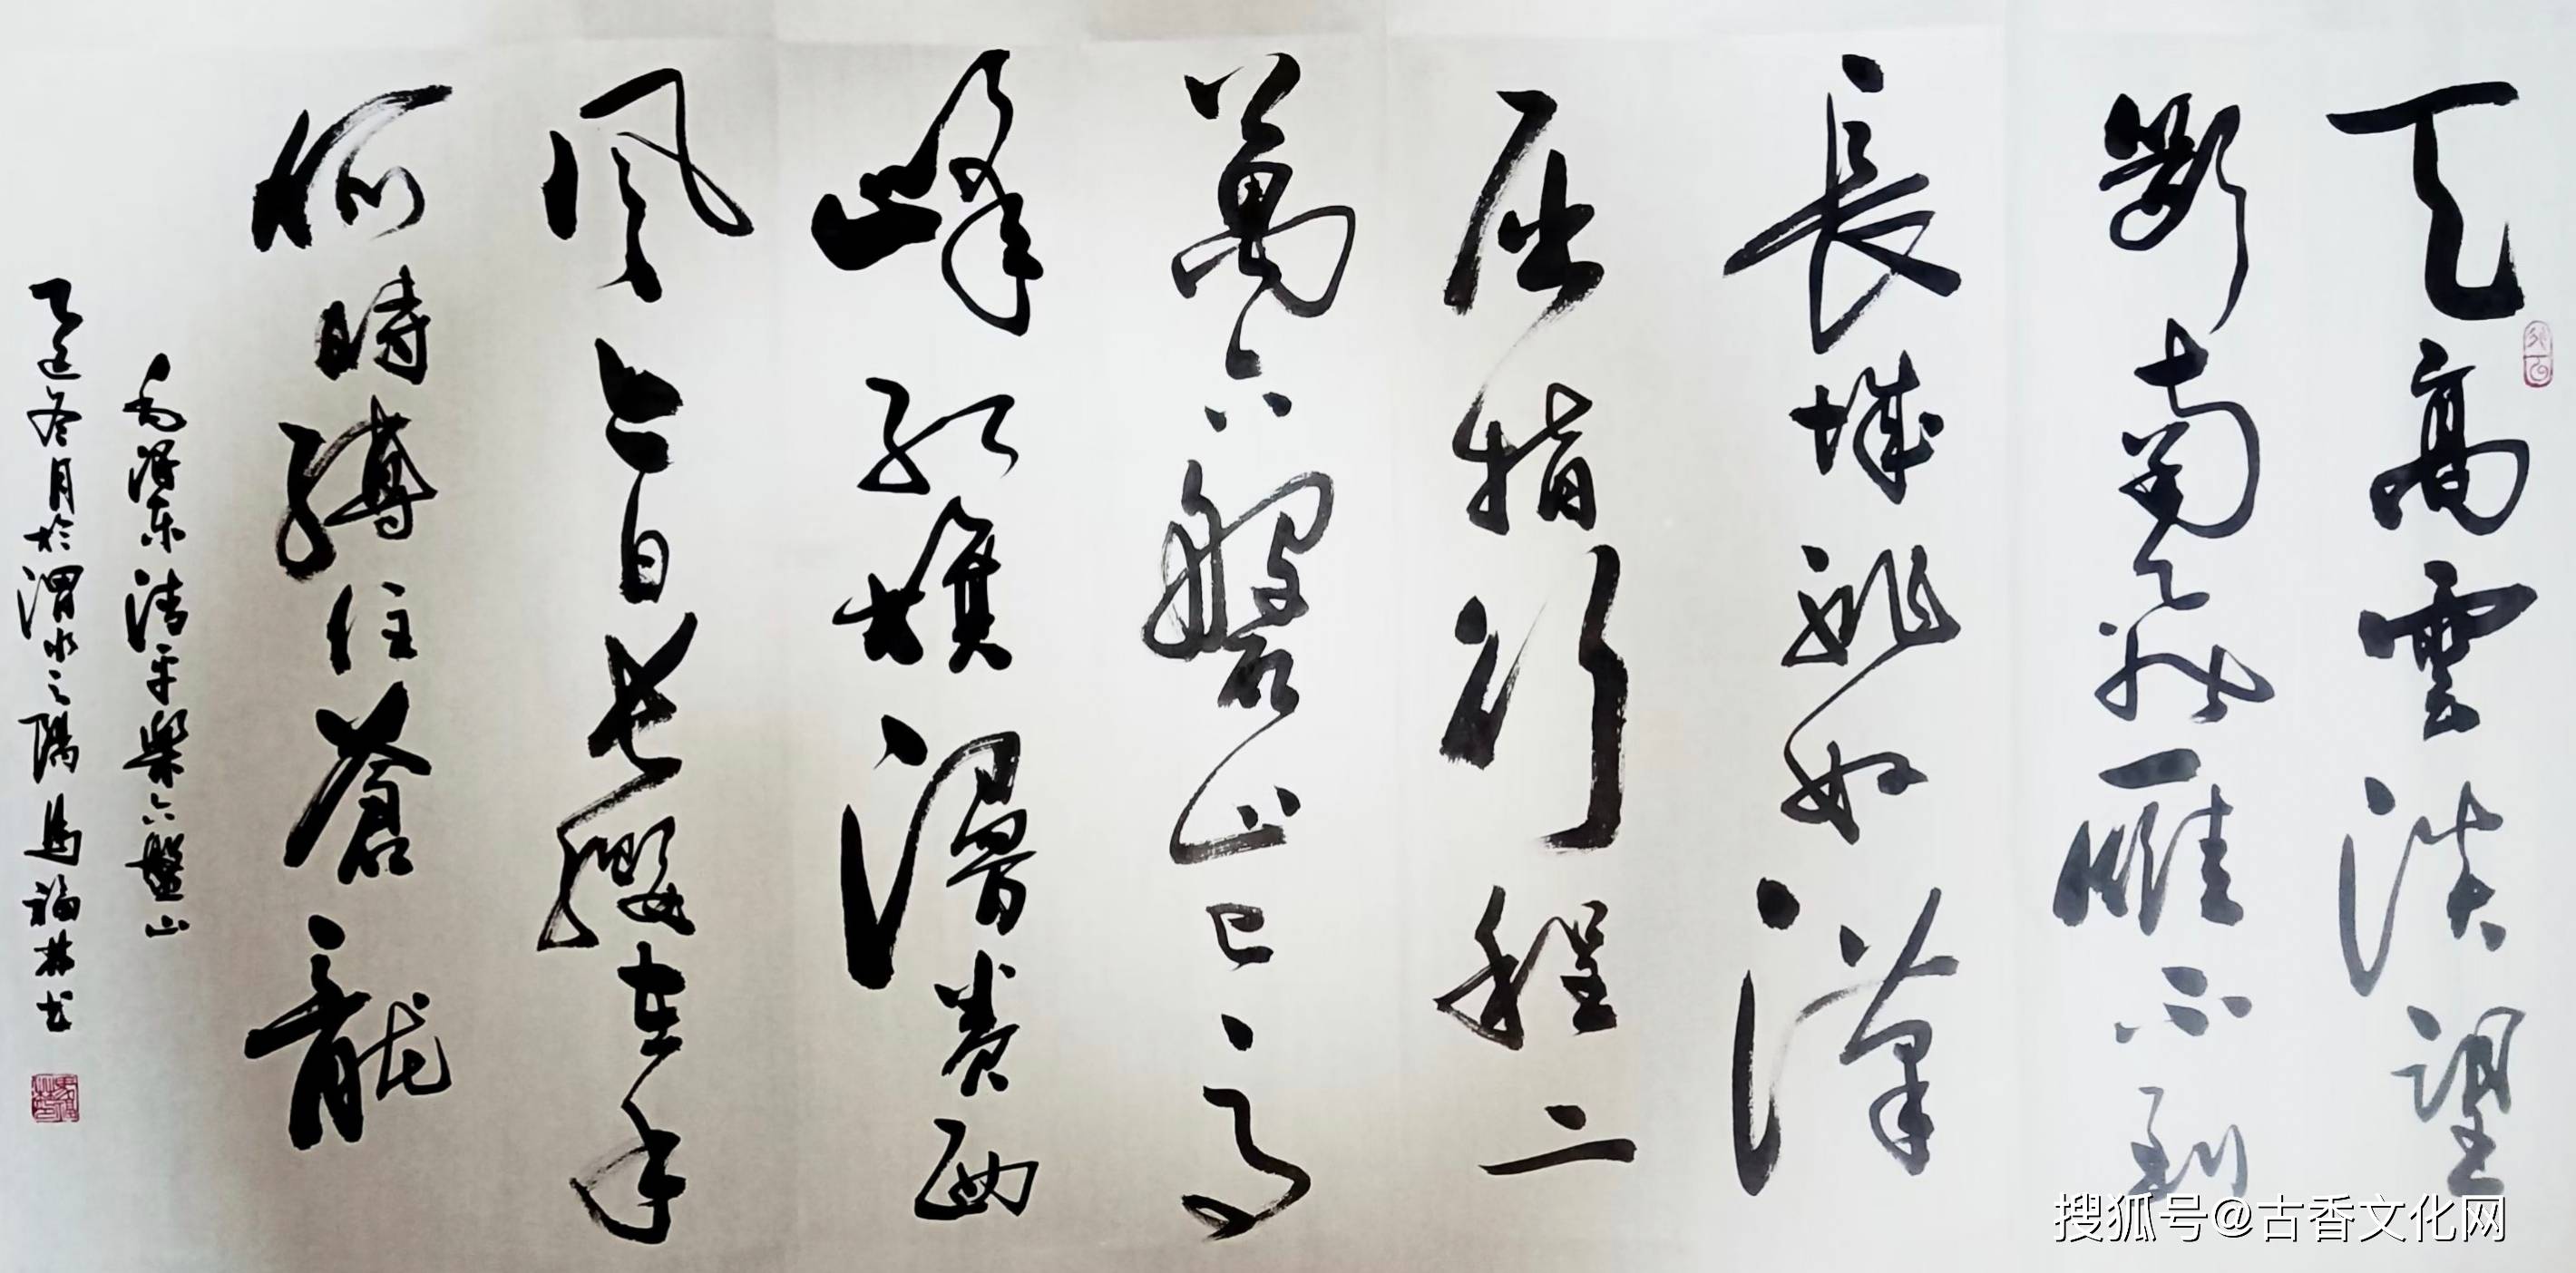 天高雲淡望
斷南飛雁不到
長城非好漢
屈指行程二
萬六磐山上高
峰紅旗漫卷西
風今日長纓在手
何時縛住蒼龍
毛澤東清平樂六盤山
乙巳冬月於渭水之陽馬福林书
搜狐号@古香文化网